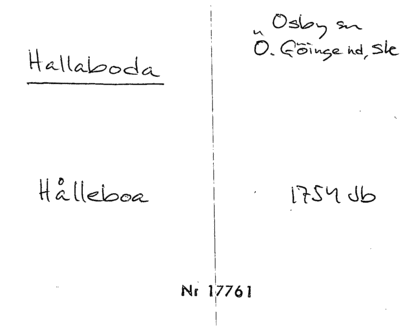 Hallaboda
Osby sn
Ö. Göinge hd, Sk
Hålleboa
1754 Jb
Nr 17761